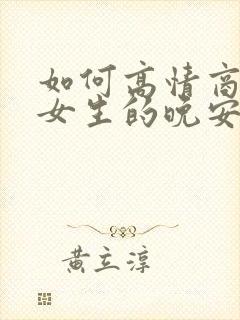 如何高情商
女生的晚安
黄立淳